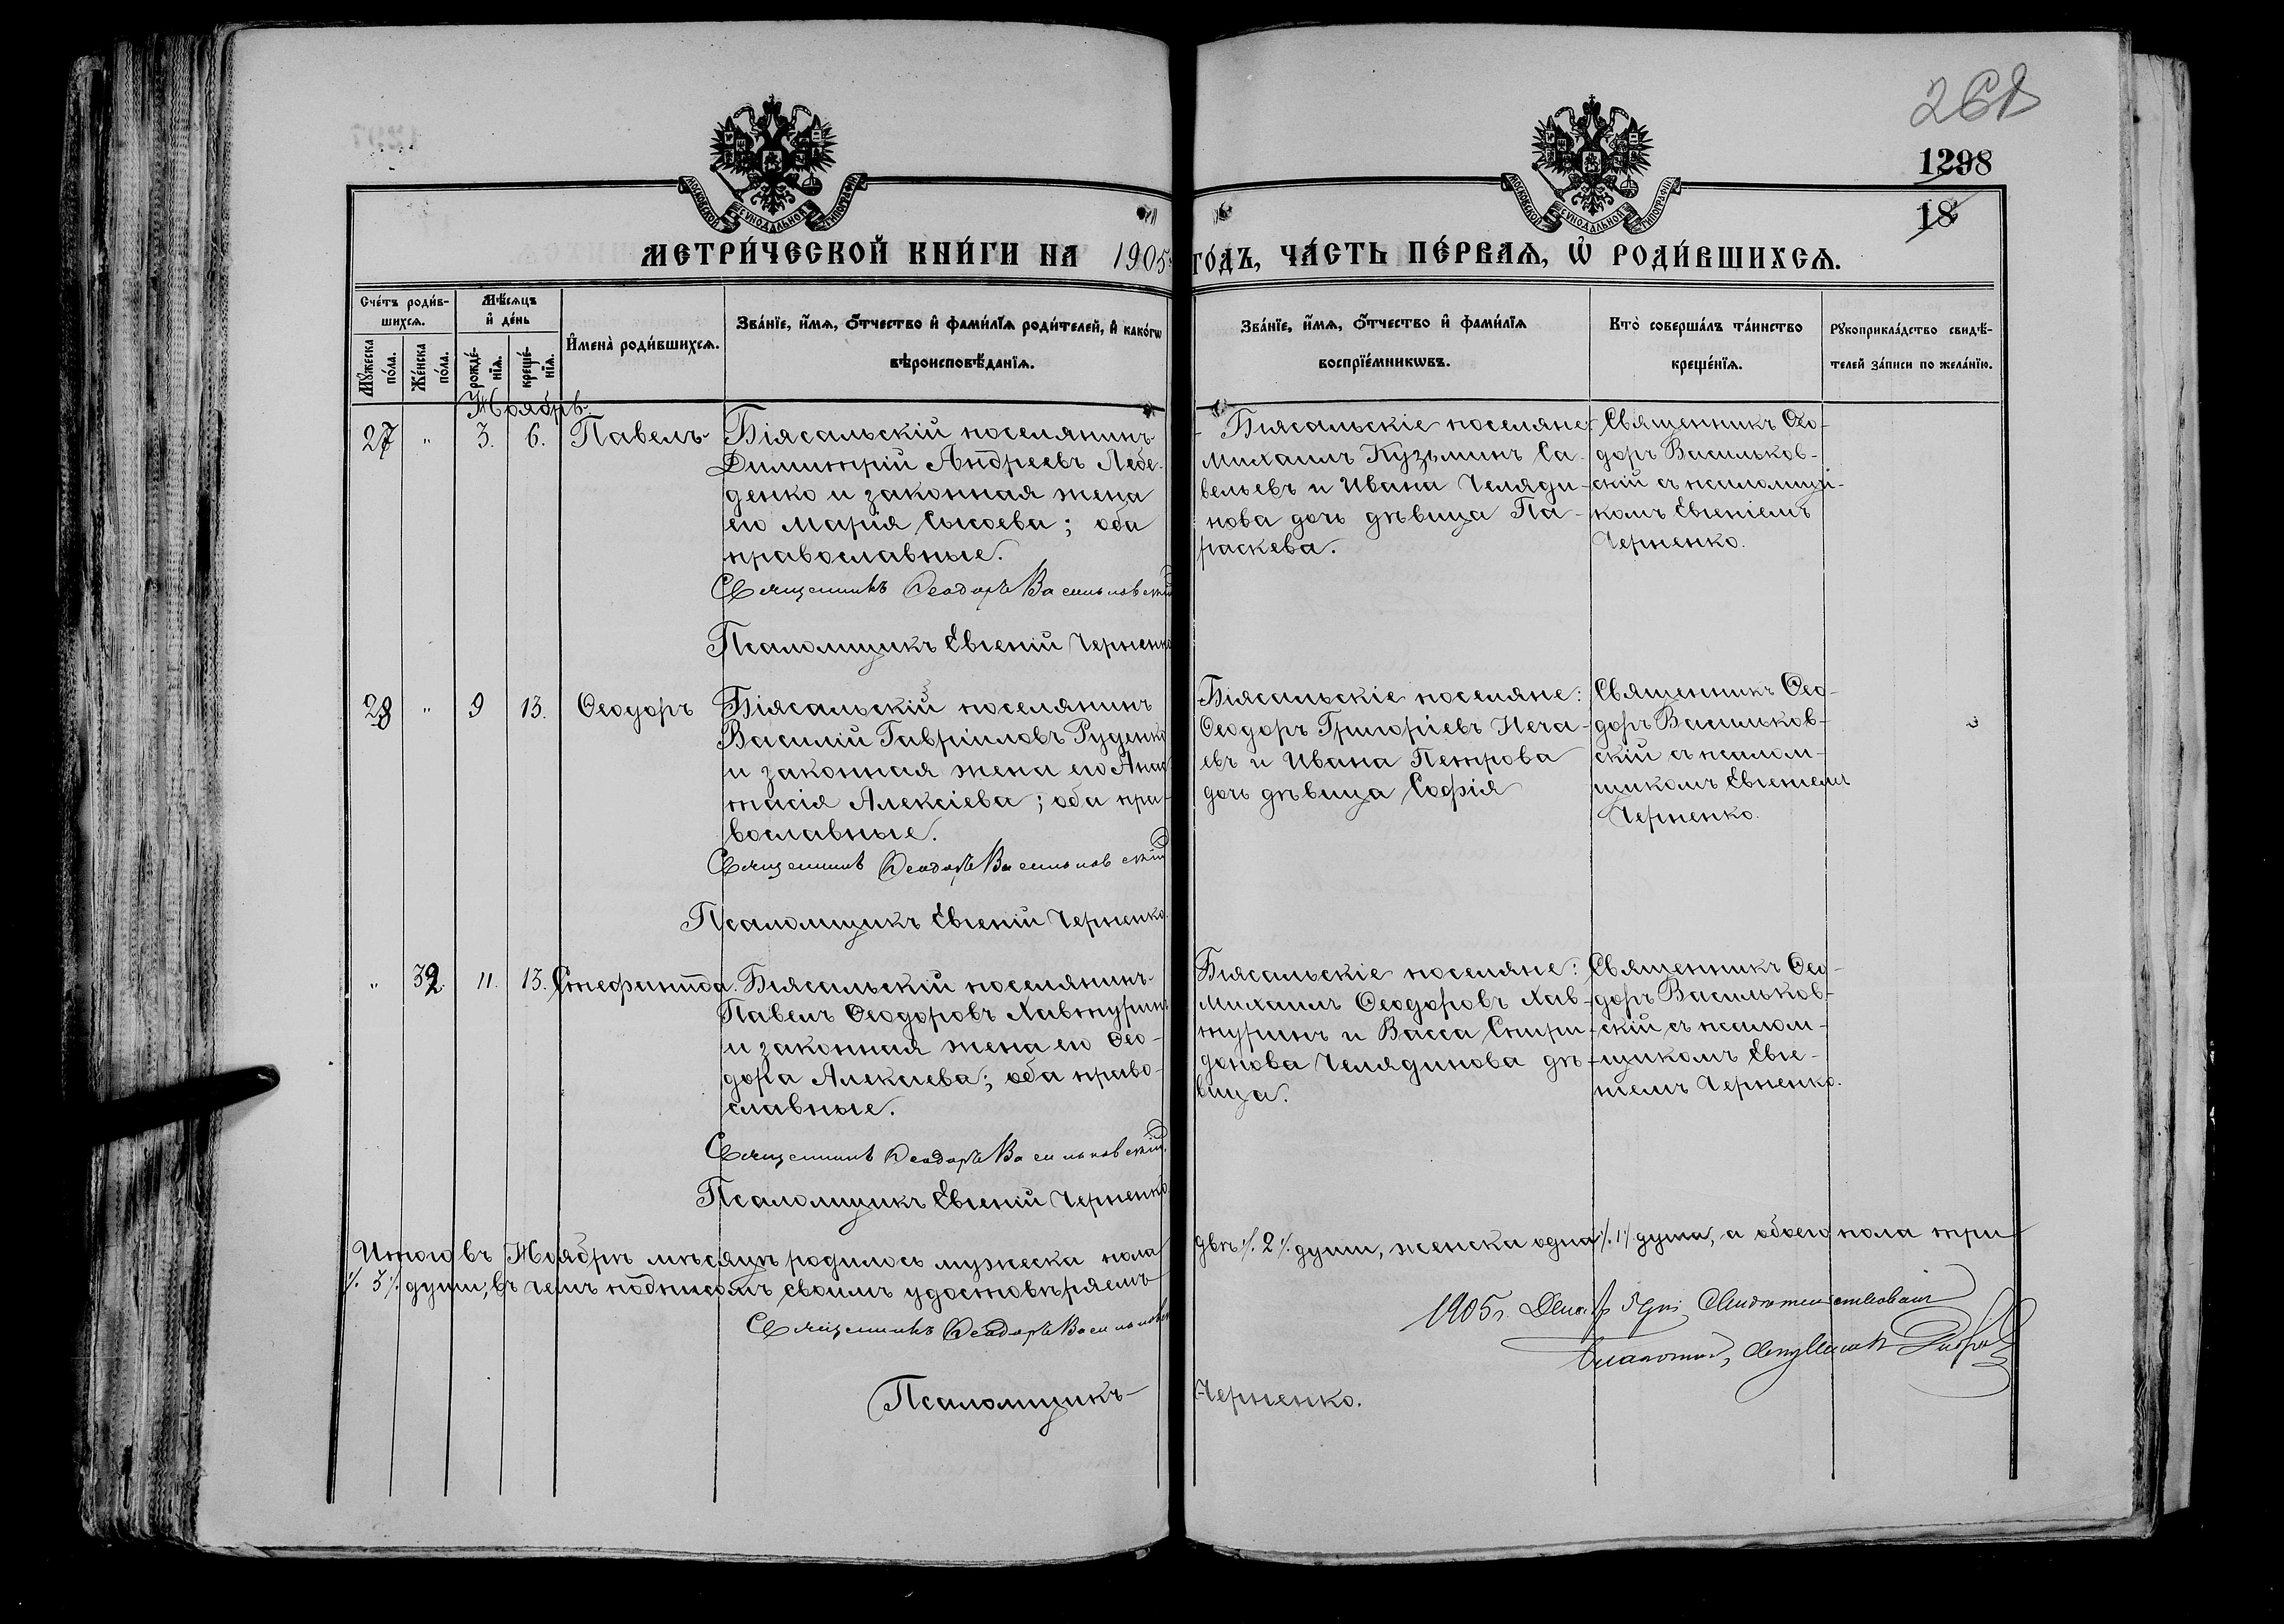 268
1298
18
МОСКОВСКОЙ СѴНОДАЛЬНОЙ ТИПОГРАФІИ
МОСКОВСКОЙ СѴНОДАЛЬНОЙ ТИПОГРАФІИ
МЕТРИ́ЧЕСКОЙ КНИ́ГИ НА 1905 ГО́ДЪ, ЧА́СТЬ ПЕ́РВАѦ, Ѡ҆ РОДИ́ВШИХСѦ.
Сче́тъ роди́в-
шихсѧ.
Мꙋ́жеска
по́ла.
Же́нска
по́ла.
Мѣ́сѧцъ
и҆ де́нь
рожде́-
нїѧ.
креще́-
нїѧ.
И҆мена̀ роди́вшихсѧ.
Зва́нїе, и҆́мѧ, ѻ҆́тчество и҆ фами́лїѧ роди́телей, и҆ како́гѡ
вѣроисповѣ́данїѧ.
Зва́нїе, и҆́мѧ, ѻ҆́тчество и҆ фами́лїѧ
воспрїе́мникѡвъ.
Кто̀ соверша́лъ та́инство
креще́нїѧ.
Рꙋкоприкла́дство свидѣ́-
телей за́писи по жела́нїю.
Ноябрь.
27 " 3. 6. Павелъ
Біясальскій поселянинъ
Димитрій Андреевъ Лебе-
денко и законная жена
его Марія Сысоева; оба
православные.
Священникъ Ѳеодоръ Васильковскій
Псаломщикъ Евгеній Черненко
Біясальскіе поселяне
Михаилъ Кузьминъ Са-
вельевъ и Ивана Челяди-
нова дочь дѣвица Па-
раскева.
Священникъ Ѳео-
доръ Васильков-
скій съ псаломщи-
комъ Евгеніемъ
Черненко.
28 " 9 13. Ѳеодоръ
Біясальскій поселянинъ
Василій Гавріиловъ Руденко
и законная жена его Анас-
тасія Алексіева; оба пра-
вославные.
Священникъ Ѳеодоръ Васильковскій
Псаломщикъ Евгеній Черненко.
Біясальскіе поселяне:
Ѳеодоръ Григоріевъ Неча-
евъ и Ивана Петрова
дочь дѣвица Софія
Священникъ Ѳео-
доръ Васильков-
скій съ псалом-
щикомъ Евгеніемъ
Черненко.
" 32. 11. 13. Стефанида.
Біясальскій поселянинъ
Павелъ Ѳеодоровъ Хавтуринъ
и законная жена его Ѳео-
дора Алексіева; оба право-
славные.
Священникъ Ѳеодоръ Васильковскій.
Псаломщикъ Евгеній Черненко.
Біясальскіе поселяне:
Михаилъ Ѳеодоровъ Хав-
туринъ и Васса Спири-
донова Челядинова дѣ-
вица.
Священникъ Ѳео-
доръ Васильков-
скій съ псалом-
щикомъ Евге-
ніемъ Черненко.
Итого въ Ноябрѣ мѣсяцѣ родилось мужеска пола двѣ ⁒ 2 ⁒ души, женска одна ⁒ 1 ⁒ душа, а обоего пола три
⁒ 3 ⁒ души, въ чемъ подписомъ своимъ удостовѣряемъ
Священникъ Ѳеодоръ Васильковскій
Псаломщикъ Черненко.
1905г. Декабр 5 дня Свидетельствовалъ